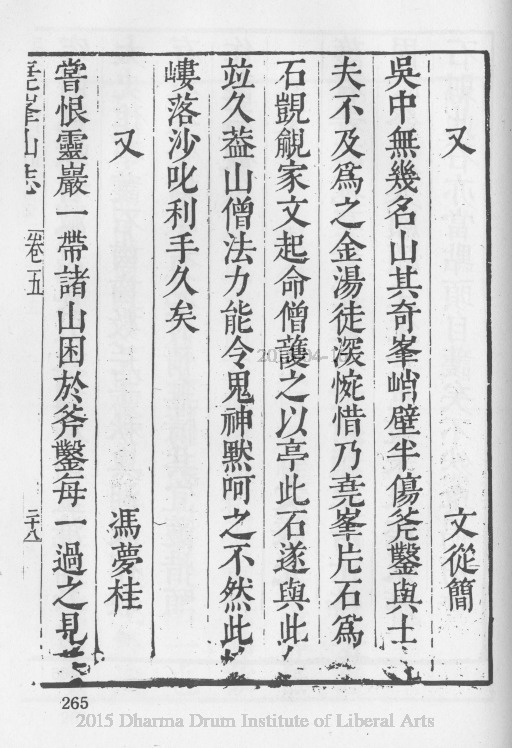 又 文從簡
吳中無幾名山其奇峯峭壁半傷斧鑿與士
夫不及爲之金湯徒深惋惜乃堯峯片石爲
石覬覦家文起命僧護之以亭此石遂與此
竝久葢山僧法力能令鬼神默呵之不然此
嶁落沙叱利手久矣
又 馮夢桂
嘗恨靈巖一帶諸山困於斧鑿每一過之見
堯峯山志 卷五 二十八
265
2015 Dharma Drum Institute of Liberal Arts